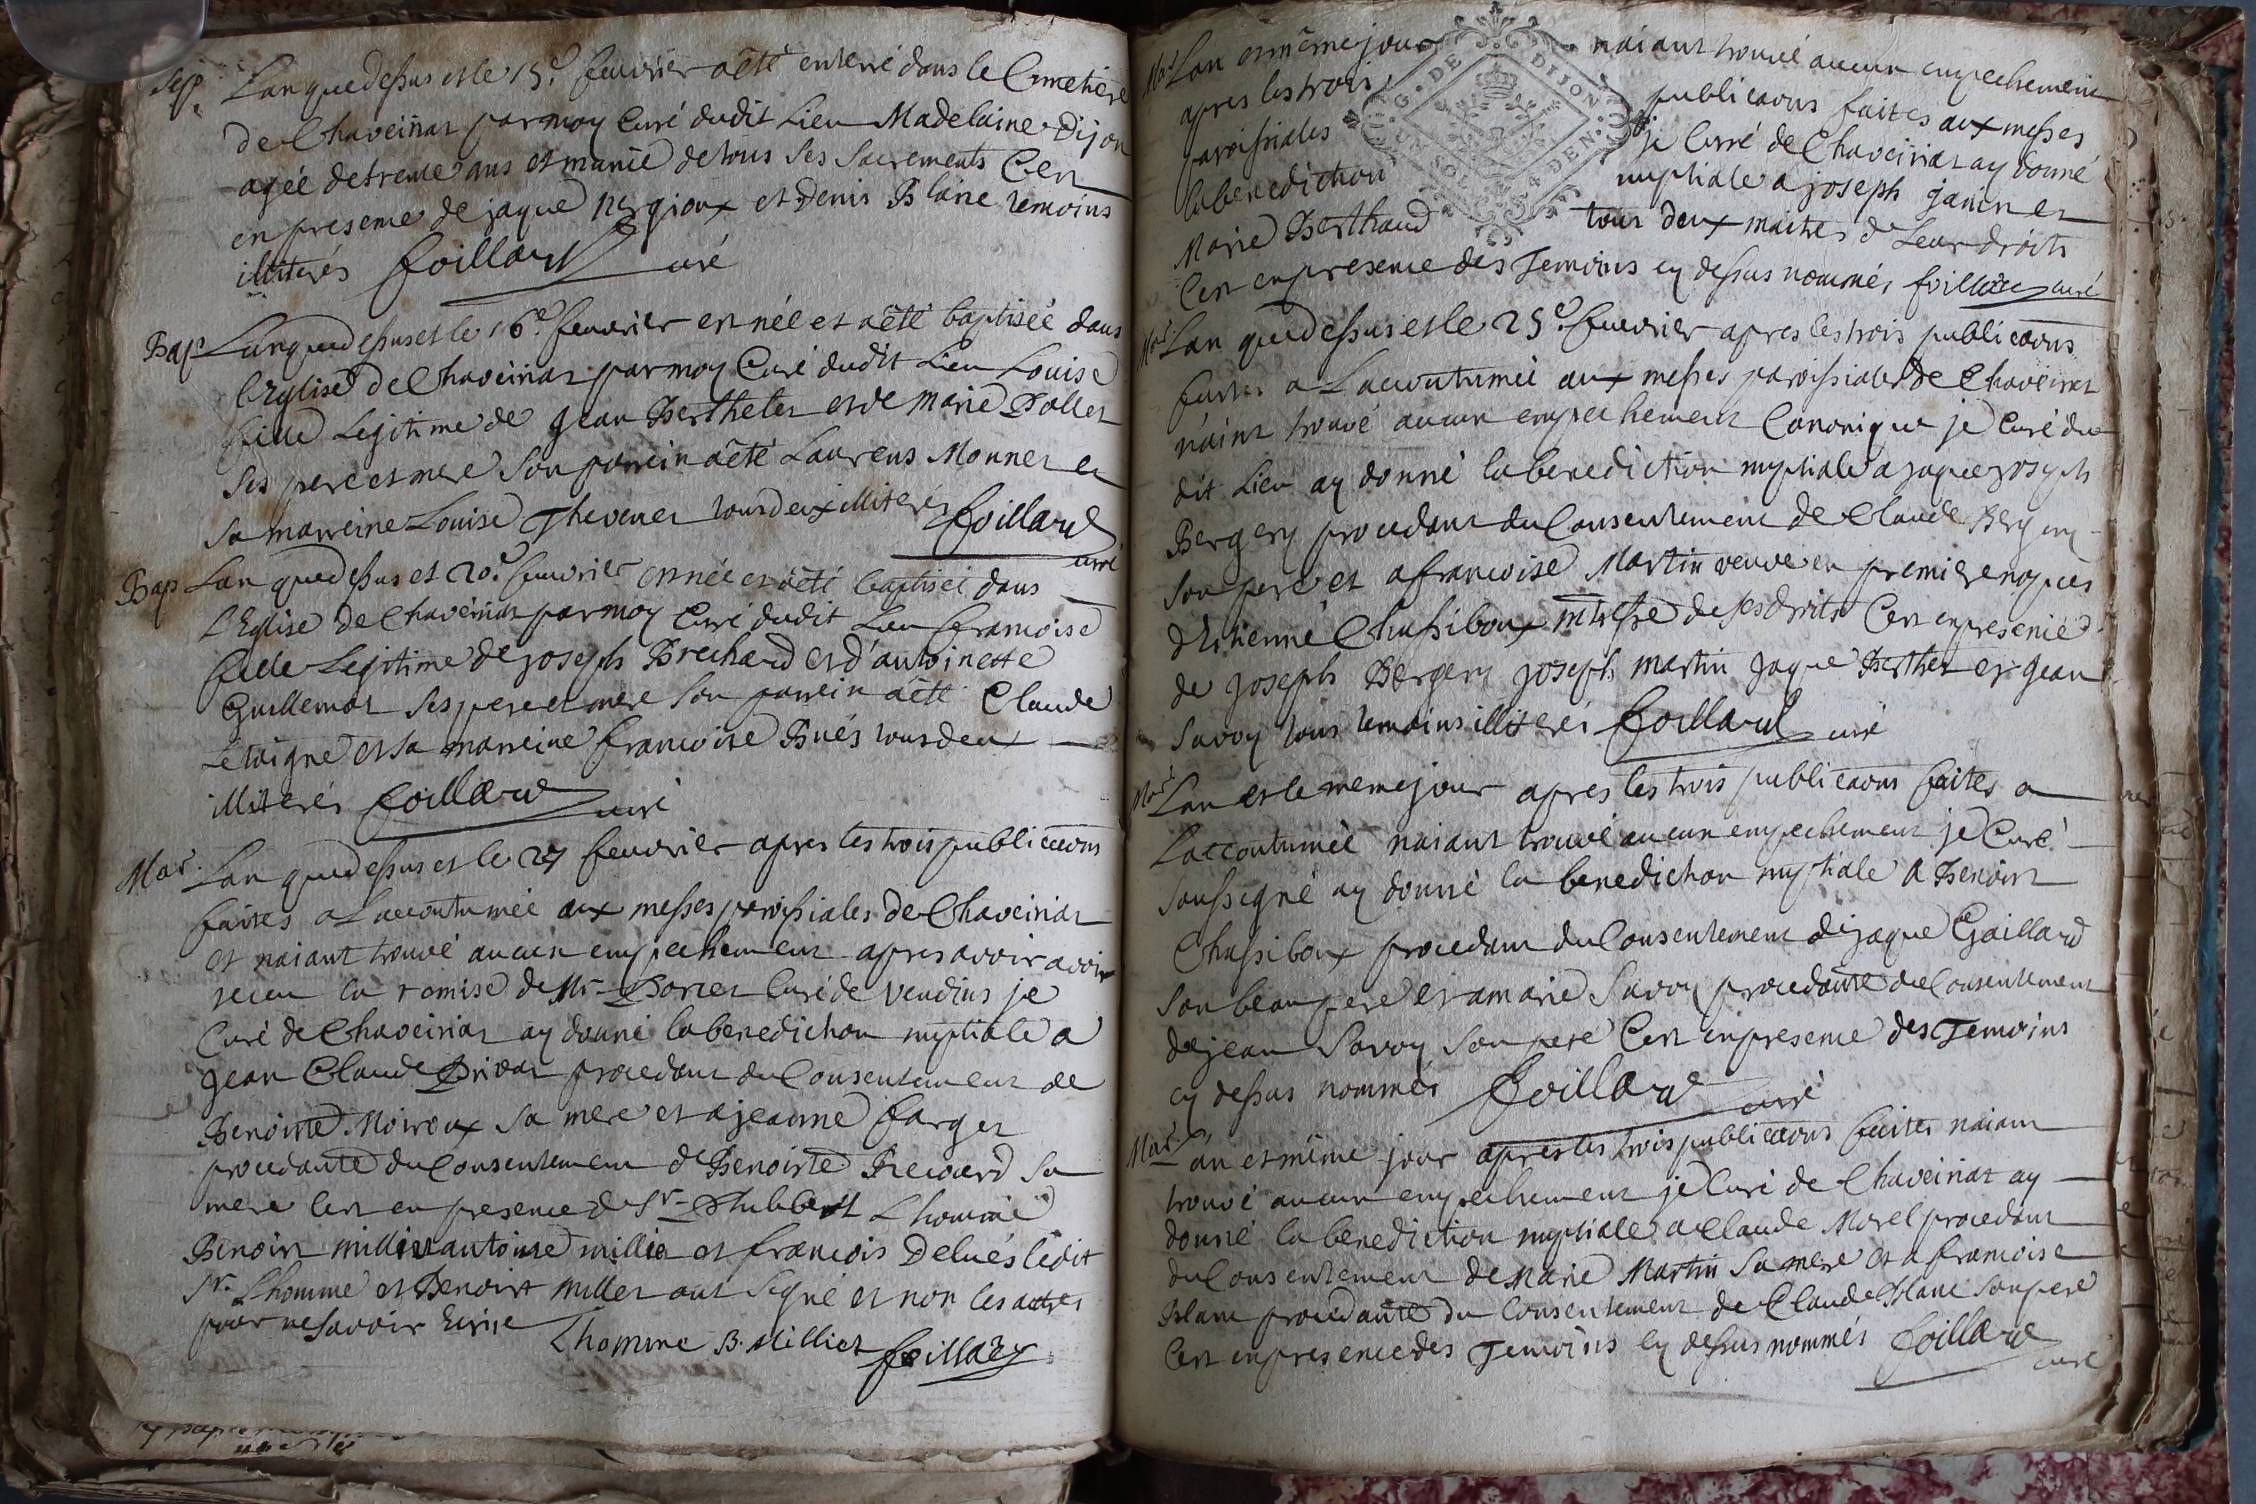 Sep. Lan que dessus et le 15e. feuvrier a êté enterré dans le Cimetiere
de Chaveiriat par moy Curé dudit Lieu Madelaine Dijon
agée de trente ans et munie de tous ses sacrements Cen
en presence de jaque nergioux et Denis Blanc temoins
illiterés foillard curé
Bap Lan que dessus et le 16e. feuvrier en née et a êté baptisée dans
l'Eglise de Chaveiriat par moy Curé dudit Lieu Louise
fille Legitime de Jean Berthelet et de Marie Pollet
ses pere et mere son parrein a êté Laurens Monnet et
sa marreine Louise Thevenet tous deux illiterés foillard
curé
Bap Lan que dessus et 20e. feuvrier en née et a êté baptisée dans
L'Eglise de Chaveiriat par moy Curé dudit Lieu francoise
fille Legitime de joseph Brechard et d'antoinette
Guillemot ses pere et mere son parrein a êté Claude
et sa marreine francoise Bués tous deux
illiterés foillard curé
Mar. Lan que dessus et le 24 feuvrier apres les trois publicaons
faites a Laccoutumée aux messes paroissiales de Chaveiriat
et naiant trouvé aucun empechement apres avoir avoir
receu la remise de Mr. curé de Vendins je
Curé de Chaveiriat ay donné la benediction nuptiale a
Jean Claude procedant du Consentement de
Benoiste Moiroux sa mere et a jeanne farget
procedante du Consentement de Benoiste sa
mere Cen en presence de Sr. Lhomme
Benoist millier antoine millier et francois Delués ledit
Sr. Lhomme et Benoist millet ont signé et non les autres
pour ne savoir Ecrire
Lhomme B. Milliet foillard
Mar Lan et même jour naiant trouvé aucun empechement
G. DE DIJON
apres les trois publicaons faites aux messes
paroissiales je Curé de Chaveiriat ay donné
la benediction nuptiale a joseph janin et
Marie Berthaud tous deux maitres de Leur droits
Cen en presence des Temoins cy dessus nommés foillard curé
Mar Lan que dessus et le 25e. feuvrier apres les trois publicaons
faites a Laccoutumée aux messes paroissiales de Chaveiriat
naiant trouvé aucun empechement Canonique je Curé du
dit Lieu ay donné la benediction nuptiale a jaque joseph
Bergery procedant du Consentement de Claude Bergery
son pere et a francoise Martin veuve en premiere nopces
d'Etienne Chassiboux mtresse de ses droits Cen en presence
de joseph Bergery joseph martin jaque Berthet et jean
Savoy tous temoins illiterés foillard curé
Mar Lan et le meme jour apres les trois publicaons faites a
Laccoutumée naiant trouvé aucun empechement je Curé
soussigné ay donné la benediction nuptiale a Benoist
Chassiboux procedant du Consentement de jaque Gaillard
son beaupere et a marie Savoy procedante du Consentement
de jean Savoy son pere Cen en presence des Temoins
cy dessus nommés foillard curé
Mar Lan et même jour apres les trois publicaons faites naiant
trouvé aucun empechement je Curé de Chaveiriat ay
donné la benediction nuptiale a Claude Morel procedant
du Consentement de Marie Martin sa mere et a francoise
Blanc procedante du Consentement de Claude Blanc son pere
Cen en presence des Temoins cy dessus nommés foillard
curé